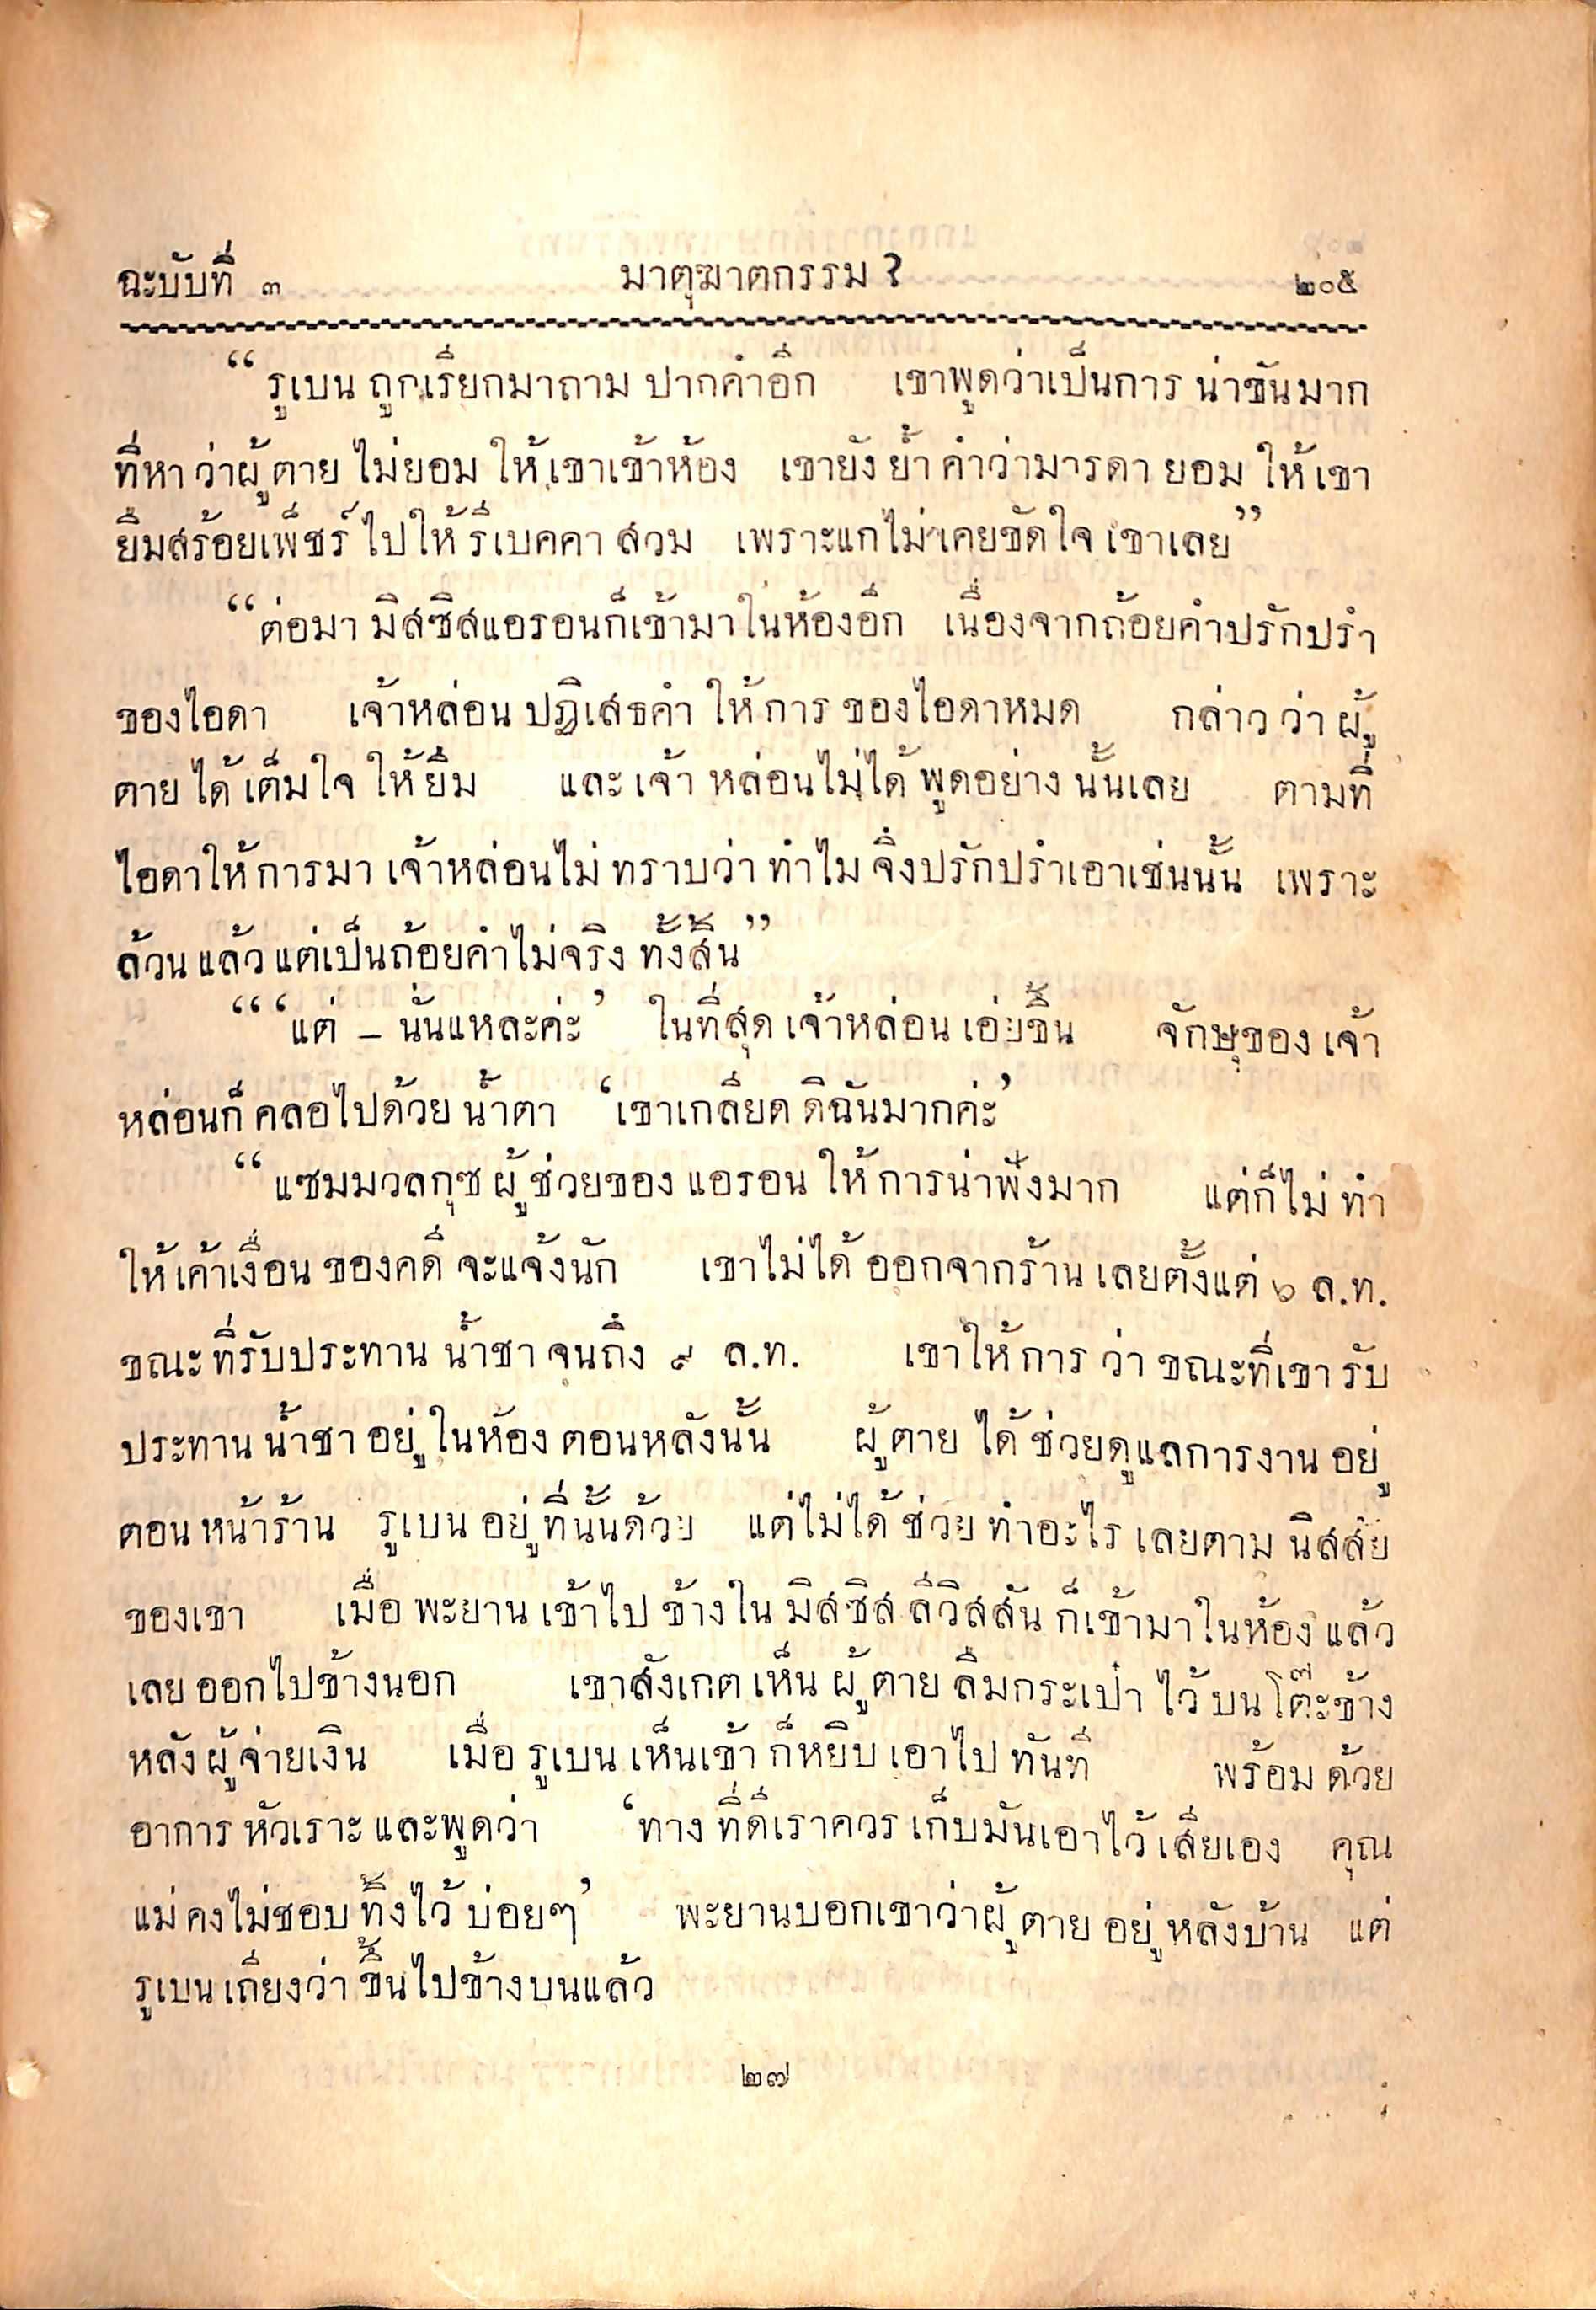 ฉะบับที่ ๓ มาตุฆาตกรรม ? ๒๐๕
“ รูเบน ถูกเรียกมาถาม ปากคำอีก เขาพูดว่าเป็นการ น่าขันมาก
ที่หา ว่าผู้ ตาย ไม่ยอม ให้ เขาเข้าห้อง เขายัง ย้ำ คำว่ามารดา ยอม ให้ เขา
ยืมสร้อยเพ็ชร์ ไปให้ รีเบคคา สวม เพราะแกไม่เคยขัดใจ เขาเลย”
“ต่อมา มิสซิสแอรอนก็เข้ามาในห้องอีก เนื่องจากถ้อยคำปรักปรำ
ของไอดา เจ้าหล่อน ปฏิเสธคำ ให้ การ ของไอดาหมด กล่าว ว่า ผู้
ตาย ได้ เต็มใจ ให้ ยืม และ เจ้า หล่อนไม่ได้ พูดอย่าง นั้นเลย ตามที่
ไอดาให้ การมา เจ้าหล่อนไม่ ทราบว่า ทำไม จึ่งปรักปรำเอาเช่นนั้น เพราะ
ล้วน แล้ว แต่เป็นถ้อยคำไม่จริง ทั้งสิ้น”
“ ‘แต่ – นั่นแหละค่ะ’ ในที่สุด เจ้าหล่อน เอ่ยขึ้น จักษุของ เจ้า
หล่อนก็ คลอไปด้วย น้ำตา ‘เขาเกลียด ดิฉันมากค่ะ’
“ แซมมวลกุซ ผู้ ช่วยของ แอรอน ให้ การน่าฟังมาก แต่ก็ไม่ ทำ
ให้ เค้าเงื่อน ของคดี จะแจ้งนัก เขาไม่ได้ ออกจากร้าน เลยตั้งแต่ ๖ ล.ท.
ขณะ ที่รับประทาน น้ำชา จนถึง ๙ ล.ท. เขาให้ การ ว่า ขณะที่เขา รับ
ประทาน น้ำชา อยู่ ในห้อง ตอนหลังนั้น ผู้ ตาย ได้ ช่วยดูแลการงาน อยู่
ตอน หน้าร้าน รูเบน อยู่ ที่นั้นด้วย แต่ไม่ได้ ช่วย ทำอะไร เลยตาม นิสสัย
ของเขา เมื่อ พะยาน เข้าไป ข้างใน มิสซิส ลีวิสสัน ก็เข้ามาในห้อง แล้ว
เลย ออกไปข้างนอก เขาสังเกต เห็น ผู้ ตาย ลืมกระเป๋า ไว้ บน โต๊ะข้าง
หลัง ผู้จ่ายเงิน เมื่อ รูเบน เห็นเข้า ก็หยิบ เอาไป ทันที พร้อม ด้วย
อาการ หัวเราะ และพูดว่า ‘ทาง ที่ดีเราควร เก็บมันเอาไว้ เสียเอง คุณ
แม่ คงไม่ชอบ ทิ้งไว้ บ่อยๆ’ พะยานบอกเขาว่าผู้ ตาย อยู่ หลังบ้าน แต่
รูเบน เถียงว่า ขึ้นไปข้างบนแล้ว
๒๗